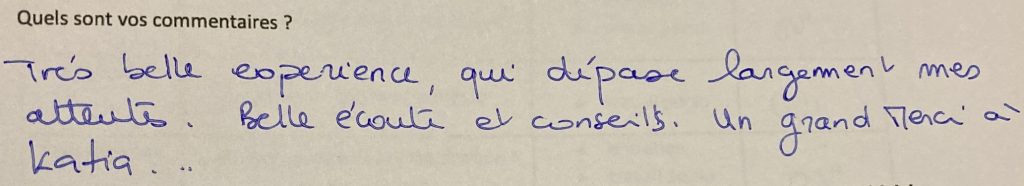 Quels sont vos commentaires ?
Très belle experience, qui dépasse largement mes
attentes. Belle écoute et conseils. Un grand Merci à
Katia. ..